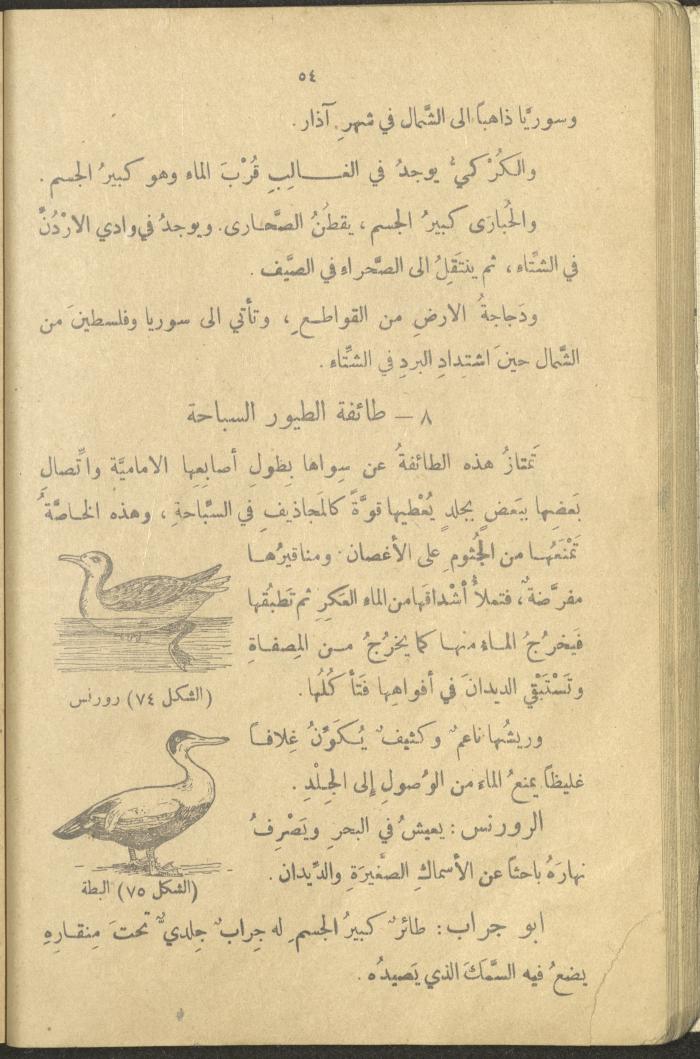 ٥٤
وسوريَّا ذاهباً الى الشَّمال في شهرِ آذار.
والكُرْكيُّ يوجدُ في الغالِبِ قُرْبَ الماء وهو كبيرُ الجسم.
والحُبارَى كبيرُ الجسم، يقطُنُ الصَّحارى. ويوجدُ في وادي الارْدُنِّ
في الشتَّاء، ثم ينتَقِلُ الى الصَّحراء في الصَّيف.
ودَجاجةُ الارضِ من القواطعِ، وتأتي الى سوريا وفلسطينَ من
الشَّمال حينَ اشتِدادِ البردِ في الشتَّاء.
٨ – طائفة الطيور السباحة
تَمتازُ هذه الطائفةُ عن سِواها بِطولِ أصابعِها الاماميَّة واتِّصالِ
بَعضِها ببَعضٍ بجلدٍ يُعْطيها قوَّةً كالمَجاذيفِ في السِّباحةِ، وهذه الخاصَّةُ
تَمْنَعُها من الجُثومِ على الأغصان. ومناقيرُها
مفرَّضةٌ، فتملأُ أشْداقَها من الماء العَكِرِ ثم تَطبُقُها
فيَخرُجُ الماء منها كما يَخرُجُ من المِصفاةِ
وتَسْتَبْقي الديدانَ في أفواهِها فَتَأكُلُها.
(الشكل ٧٤) رورنس
وريشُها ناعمٌ وكثيفٌ يُكَوِّنُ غِلافاً
غليظاً يمنعُ الماء من الوُصولِ إلى الجِلْدِ.
الرورنس: يعيشُ في البحرِ ويَصْرِفُ
نهارَهُ باحثاً عن الأسماكِ الصَّغيرَةِ والدِّيدان.
(الشكل ٧٥) البطة
ابو جراب: طائرٌ كبيرُ الجسمِ له جِرابٌ جِلديٌّ تحتَ مِنقارِهِ
يضعُ فيه السَّمَكَ الذي يَصيدُه.